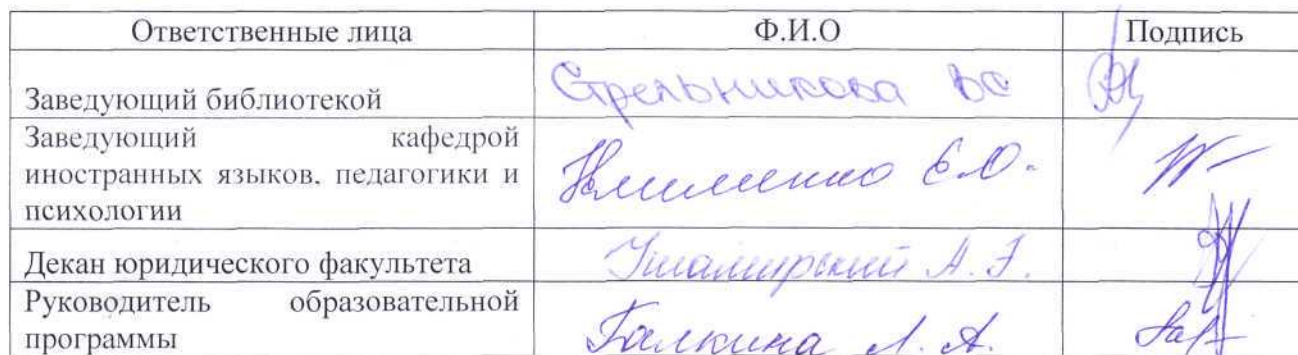 Ответственные лица Ф.И.О Подпись
Заведующий библиотекой Стрельникова ВС
Заведующий кафедрой
иностранных языков, педагогики и
психологии Е.О.
Декан юридического факультета А.
Руководитель образовательной
программы Галкина Л. А.